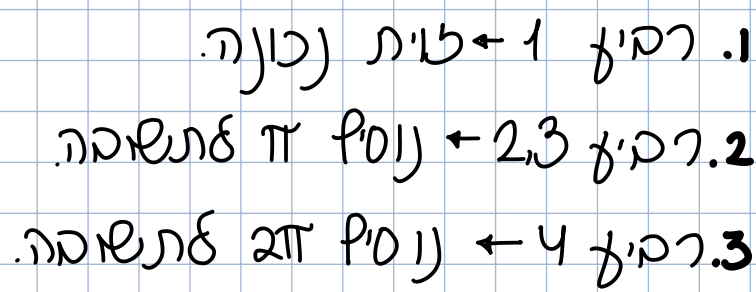 1. רביע 1 ← זוית נכונה.
2. רביע 2,3 ← נוסיף π לתשובה.
3. רביע 4 ← נוסיף 2π לתשובה.